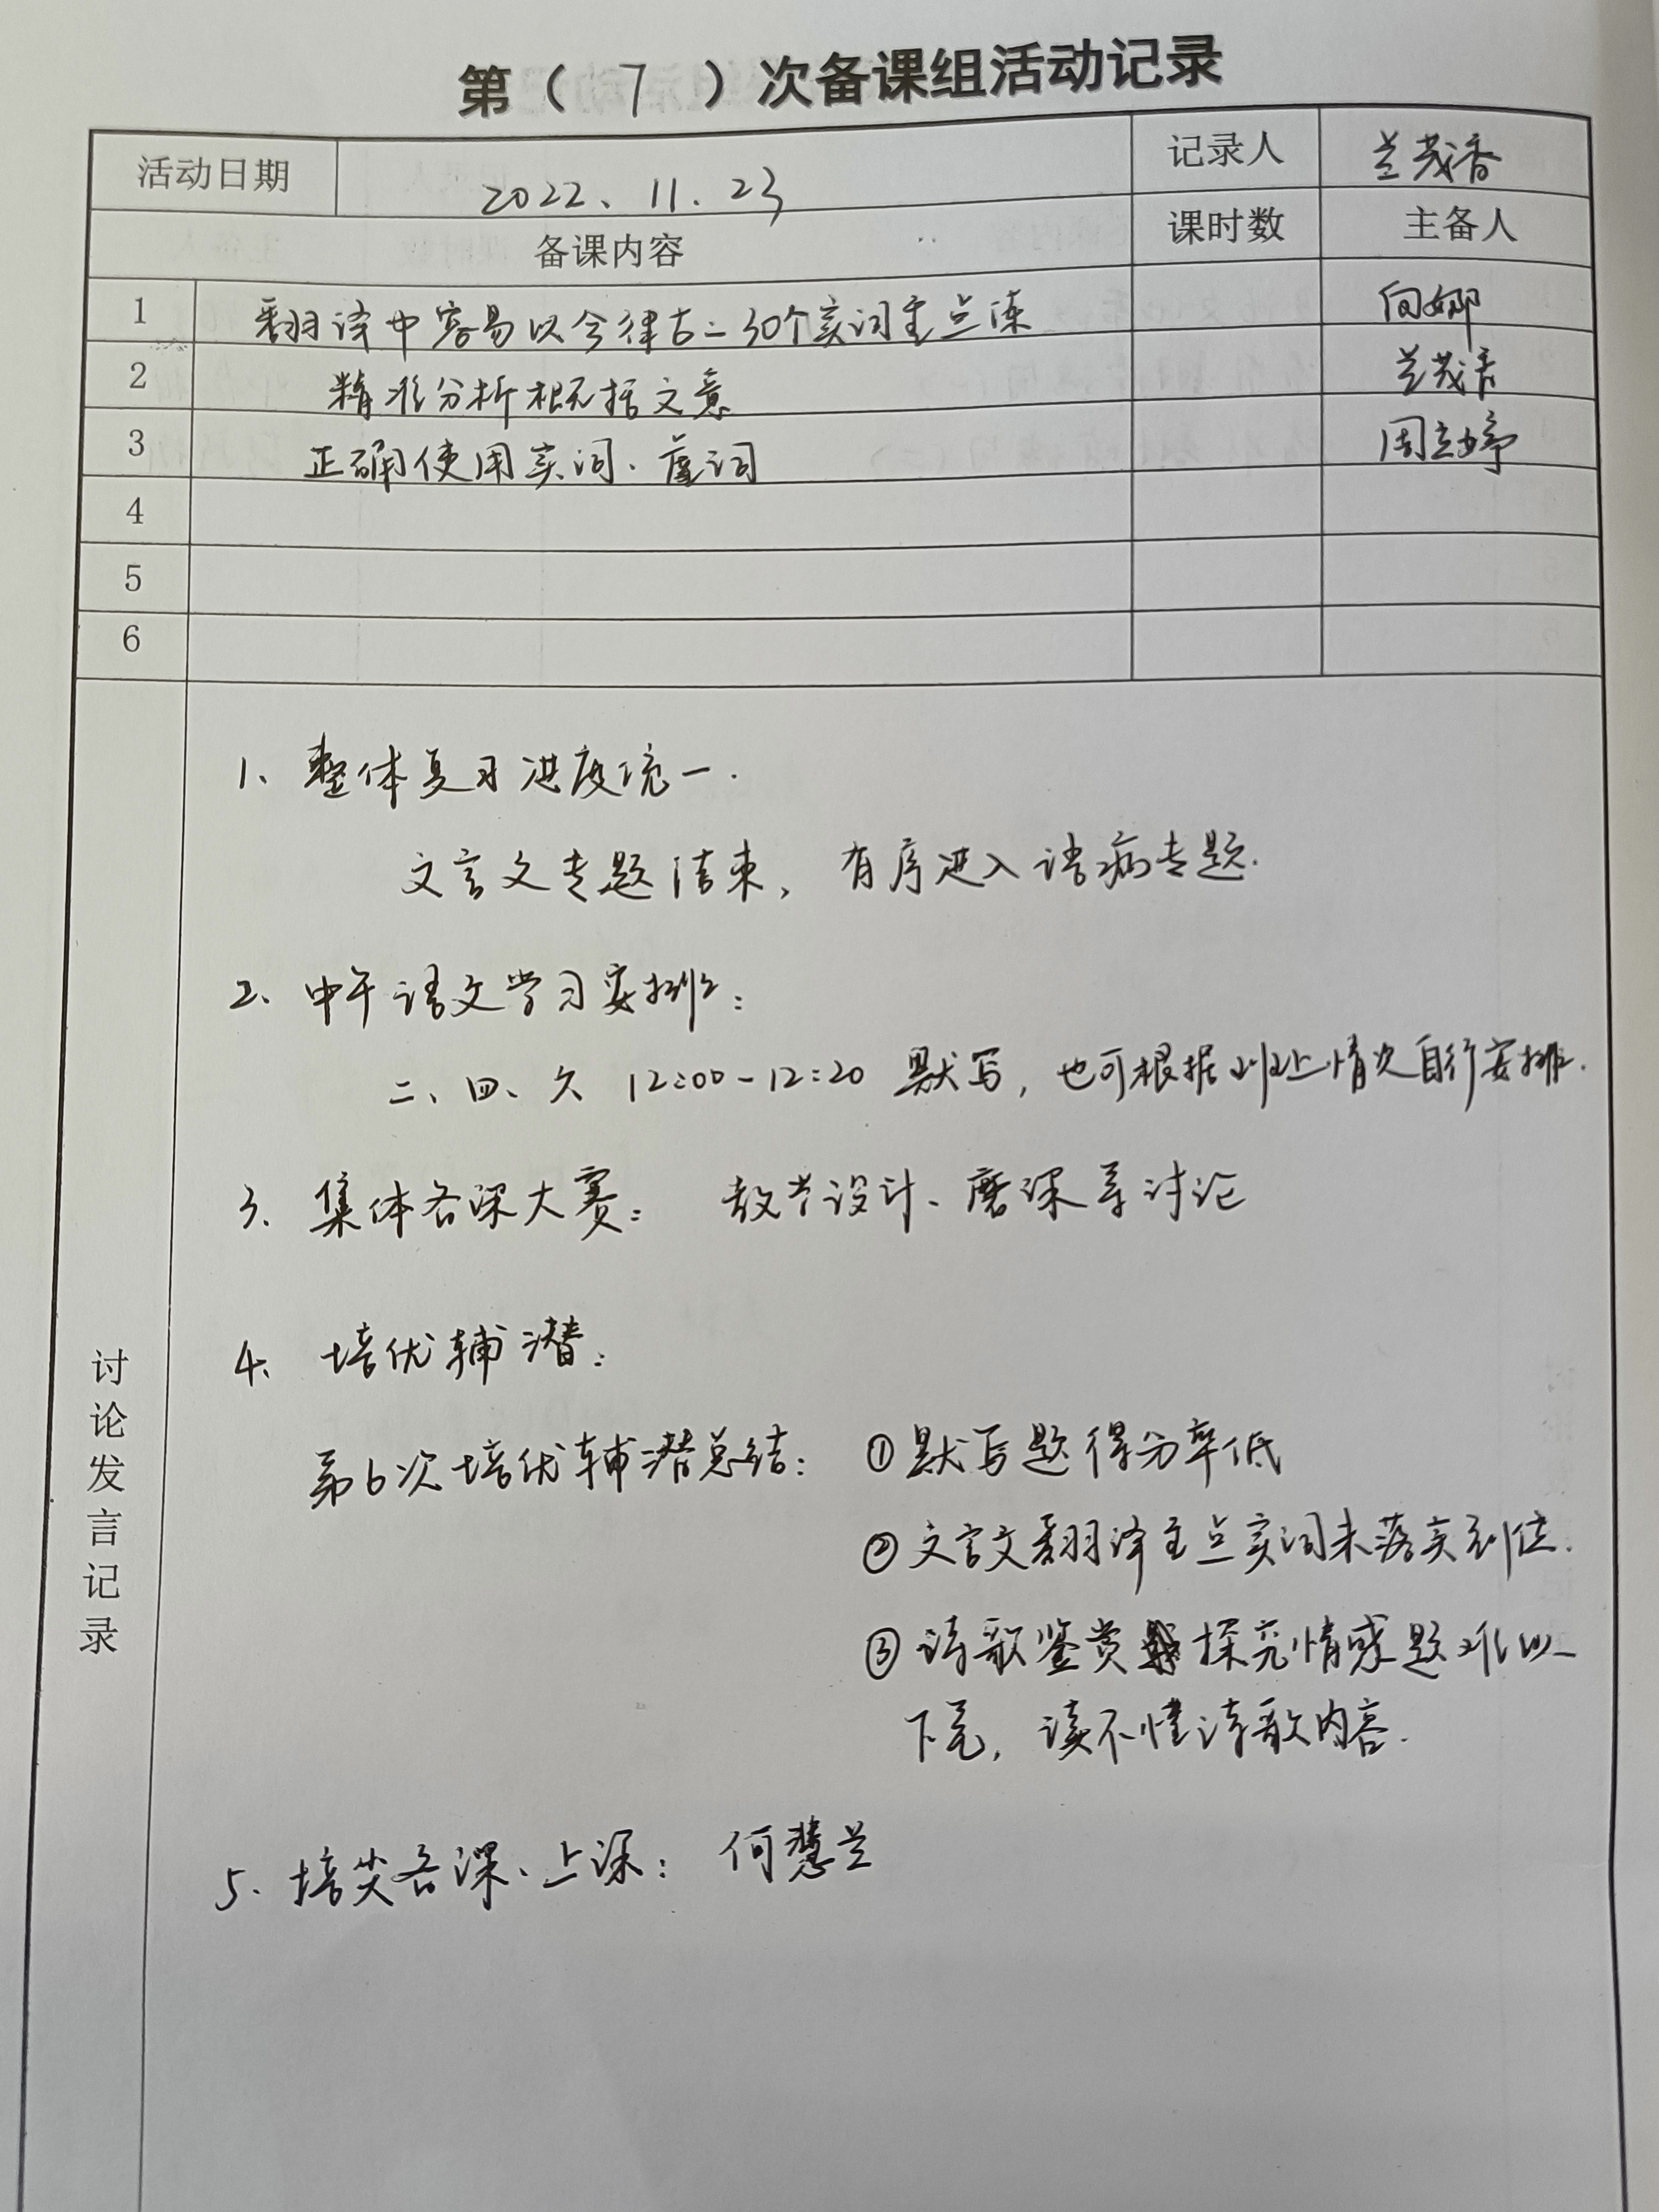 第（ 7 ）次备课组活动记录
活动日期 2022、11.23 记录人 兰茂香
备课内容 课时数 主备人
1 翻译中容易以今律古二30个实词重点练 向娜
2 精准分析概括文意 兰茂香
3 正确使用实词、虚词 周立婷
4
5
6
讨论发言记录
1、整体复习进度统一.
文言文专题结束，有序进入语病专题.
2、中午语文学习安排：
二、四、六 12:00-12:20 默写，也可根据班上情况自行安排.
3、集体备课大赛： 教学设计、磨课等讨论
4、培优辅潜：
第6次培优辅潜总结：①默写题得分率低
②文言文翻译重点实词未落实到位.
③诗歌鉴赏探究情感题难以
下笔，读不懂诗歌内容.
5、培尖备课、上课：何慧兰